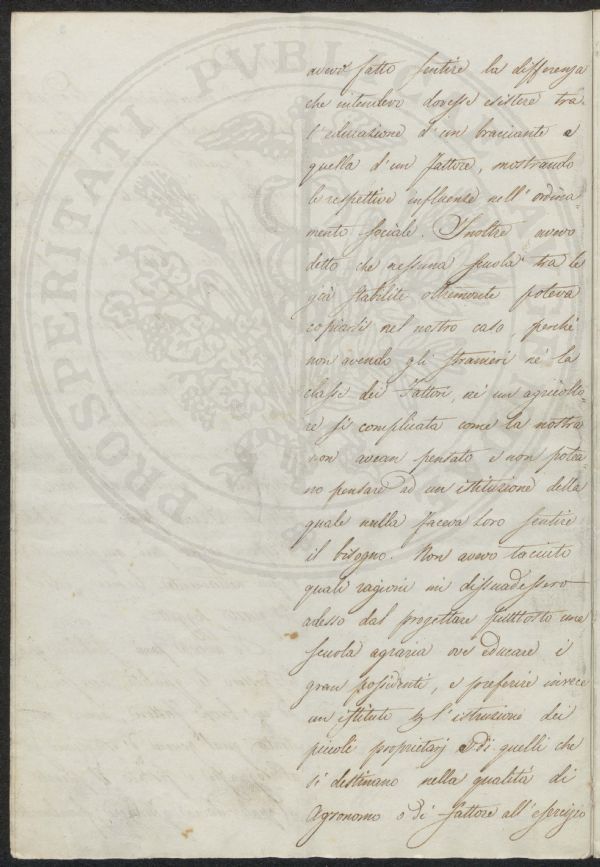 avevo fatto sentire la differenza
che intendevo dovesse esistere tra
l'educazione d'un bracciante e
quella d'un fattore, mostrando
le respettive influenze nell'ordina=
mento sociale. Inoltre avevo
detto che nessuna scuola tra le
già stabilite oltremonte poteva
copiarsi nel nostro caso perché
non avendo gli stranieri né la
classe dei Fattori, né un agricoltu=
ra sì complicata come la nostra
non avean pensato e non potea=
no pensare ad un istituzione della
quale nulla faceva loro sentire
il bisogno. Non avevo taciuto
quali ragioni mi dissuadessero
adesso dal progettare piuttosto una
scuola agraria ove educare i
gran possidenti, e preferire invece
un istituto per l'istruzione dei
piccoli proprietarj e di quelli che
si destinano nella qualità di
Agronomo o di fattore all'esercizio
PROSPERITATI PVBLICAE